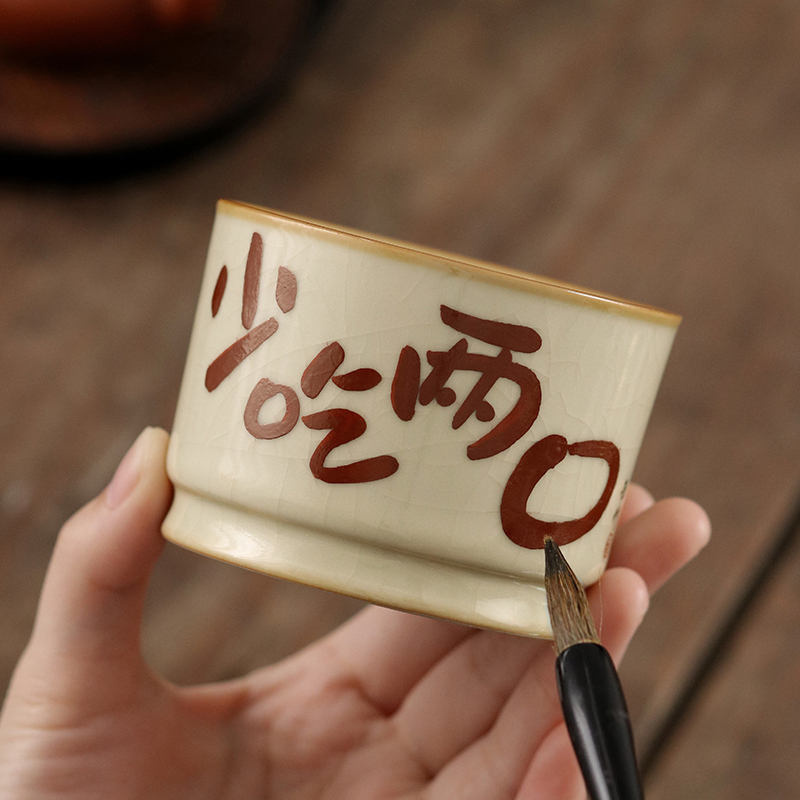 少吃两口